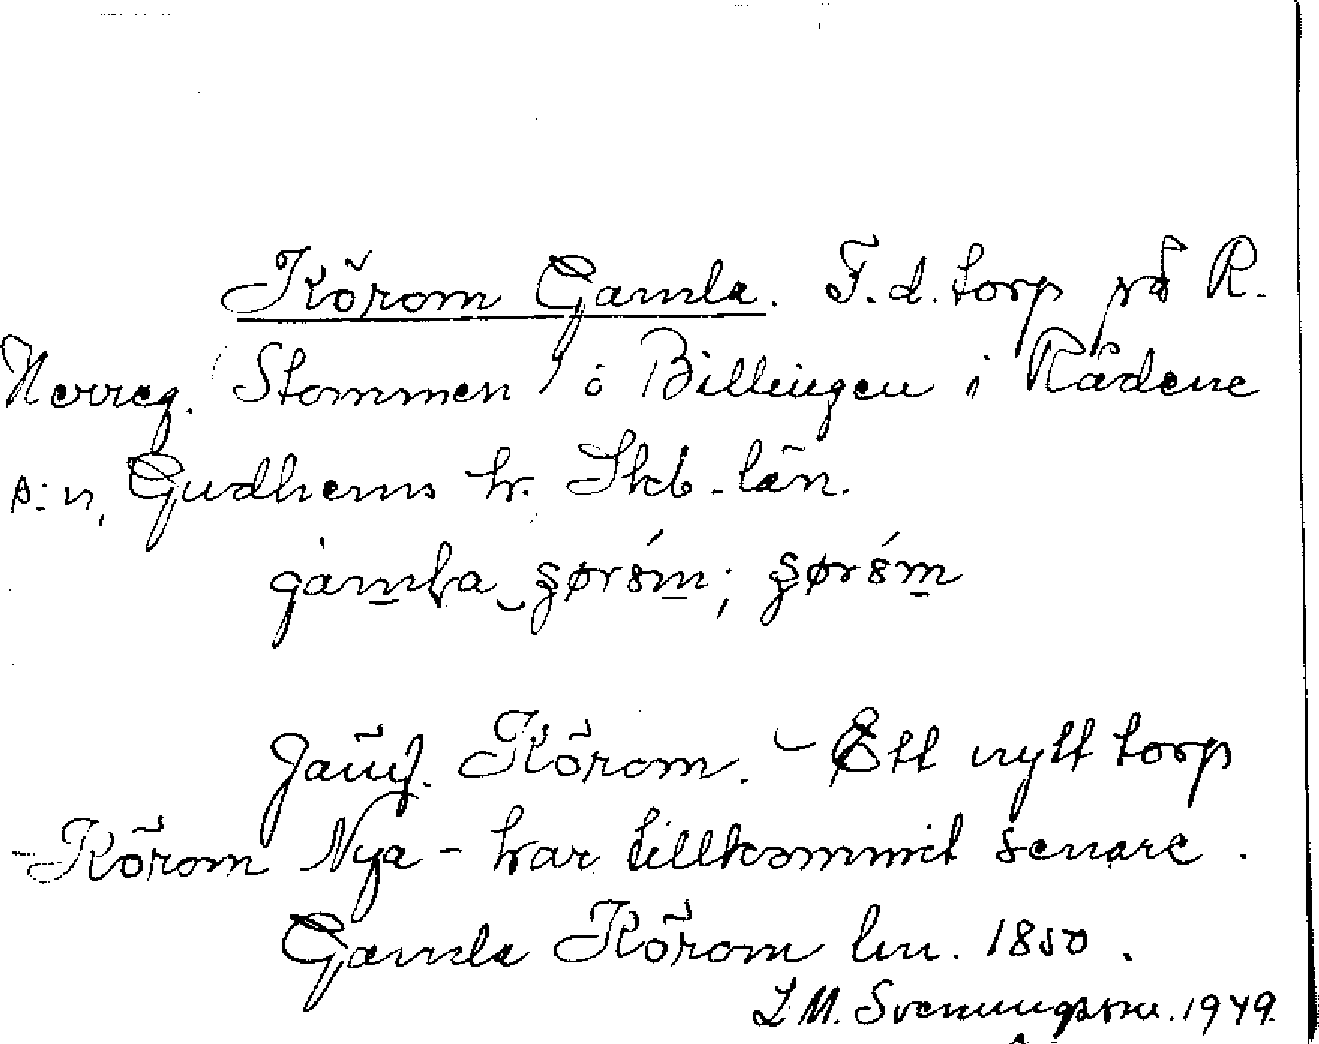 Körom Gamla. F.d. torp på R.
Herreg. (Stommen) å Billingen i Rådene
s:n, Gudhems hr. Skb. län.
Jämf. Körom. - Ett nytt torp
- Körom Nya - har tillkommit senare.
Gamla Körom hn. 1850.
L M. Svenungsson. 1949.